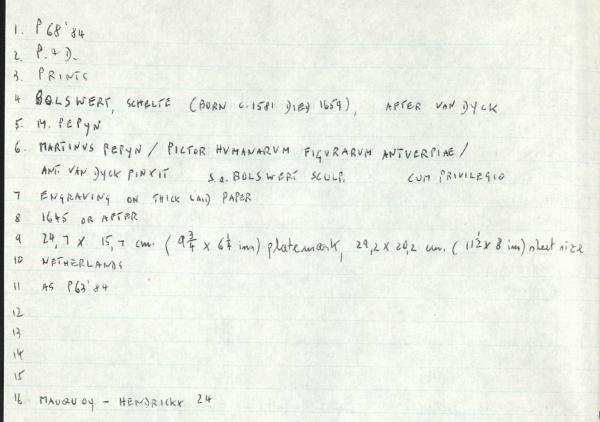 1. P68'84
2. P. & D.
3. PRINTS
4 BOLSWERT, SCHELTE (BORN c.1581 DIED 1659), AFTER VAN DYCK
5. M. PEPYN
6. MARTINVS PEPYN / PICTOR HVMANARVM FIGVRARVM ANTVERPIAE /
ANT. VAN DYCK PINXIT S.a. BOLSWERT SCULP. CUM PRIVILEGIO
7 ENGRAVING ON THICK LAID PAPER
8 1645 OR AFTER
9 24,7 x 15,7 cm. (9 3/4 x 6 1/4 ins) platemark, 29,2 x 20,2 cm. (11 1/2 x 8 ins) sheet size
10 NETHERLANDS
11 AS P63'84
12
13
14
15
16 MAUQUOY - HENDRICKX 24